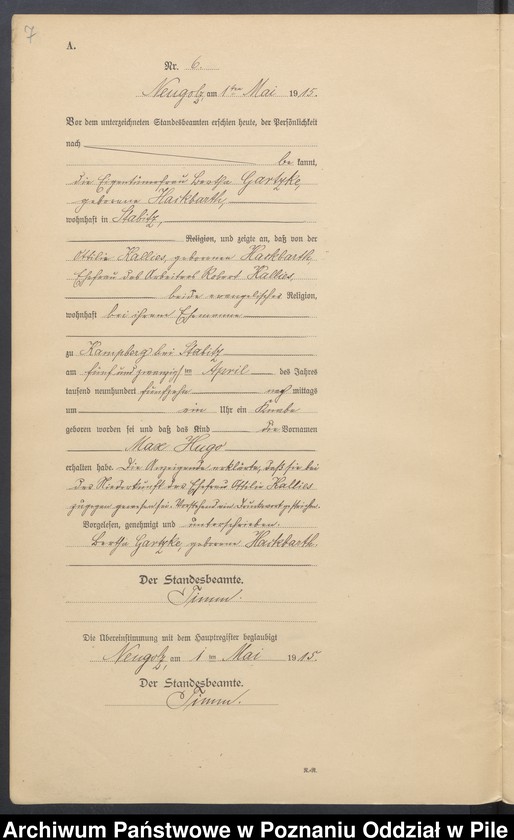 7
A.
Nr. 6.
Neugolz, am 1ten Mai 1915.
Vor dem unterzeichneten Standesbeamten erschien heute, der Persönlichkeit
nach
be kannt,
die Eigentümerfrau Bertha Gartzke,
geborene Hackbarth,
wohnhaft in Stabitz,
Religion, und zeigte an, daß von der
Ottilie Kallies, geborenen Hackbarth
Ehefrau des Arbeiters Robert Kallies,
beide evangelischer Religion,
wohnhaft bei ihrem Ehemanne
zu Kampberg bei Stabitz
am fünf und zwanzigsten April des Jahres
tausend neunhundert fünfzehn nach mittags
um ein Uhr ein Knabe
geboren worden sei und daß das Kind die Vornamen
Max Hugo
erhalten habe. Die Anzeigende erklärte, daß sie bei
der Niederkunft der Ehefrau Ottilie Kallies
zugegen gewesen sei. Vorstehend ein Druckwort gestrichen.
Vorgelesen, genehmigt und unterschrieben.
Bertha Gartzke, geborene Hackbarth.
Der Standesbeamte.
Timm.
Die Übereinstimmung mit dem Hauptregister beglaubigt
Neugolz, am 1ten Mai 1915.
Der Standesbeamte.
Timm.
Archiwum Państwowe w Poznaniu Oddział w Pile